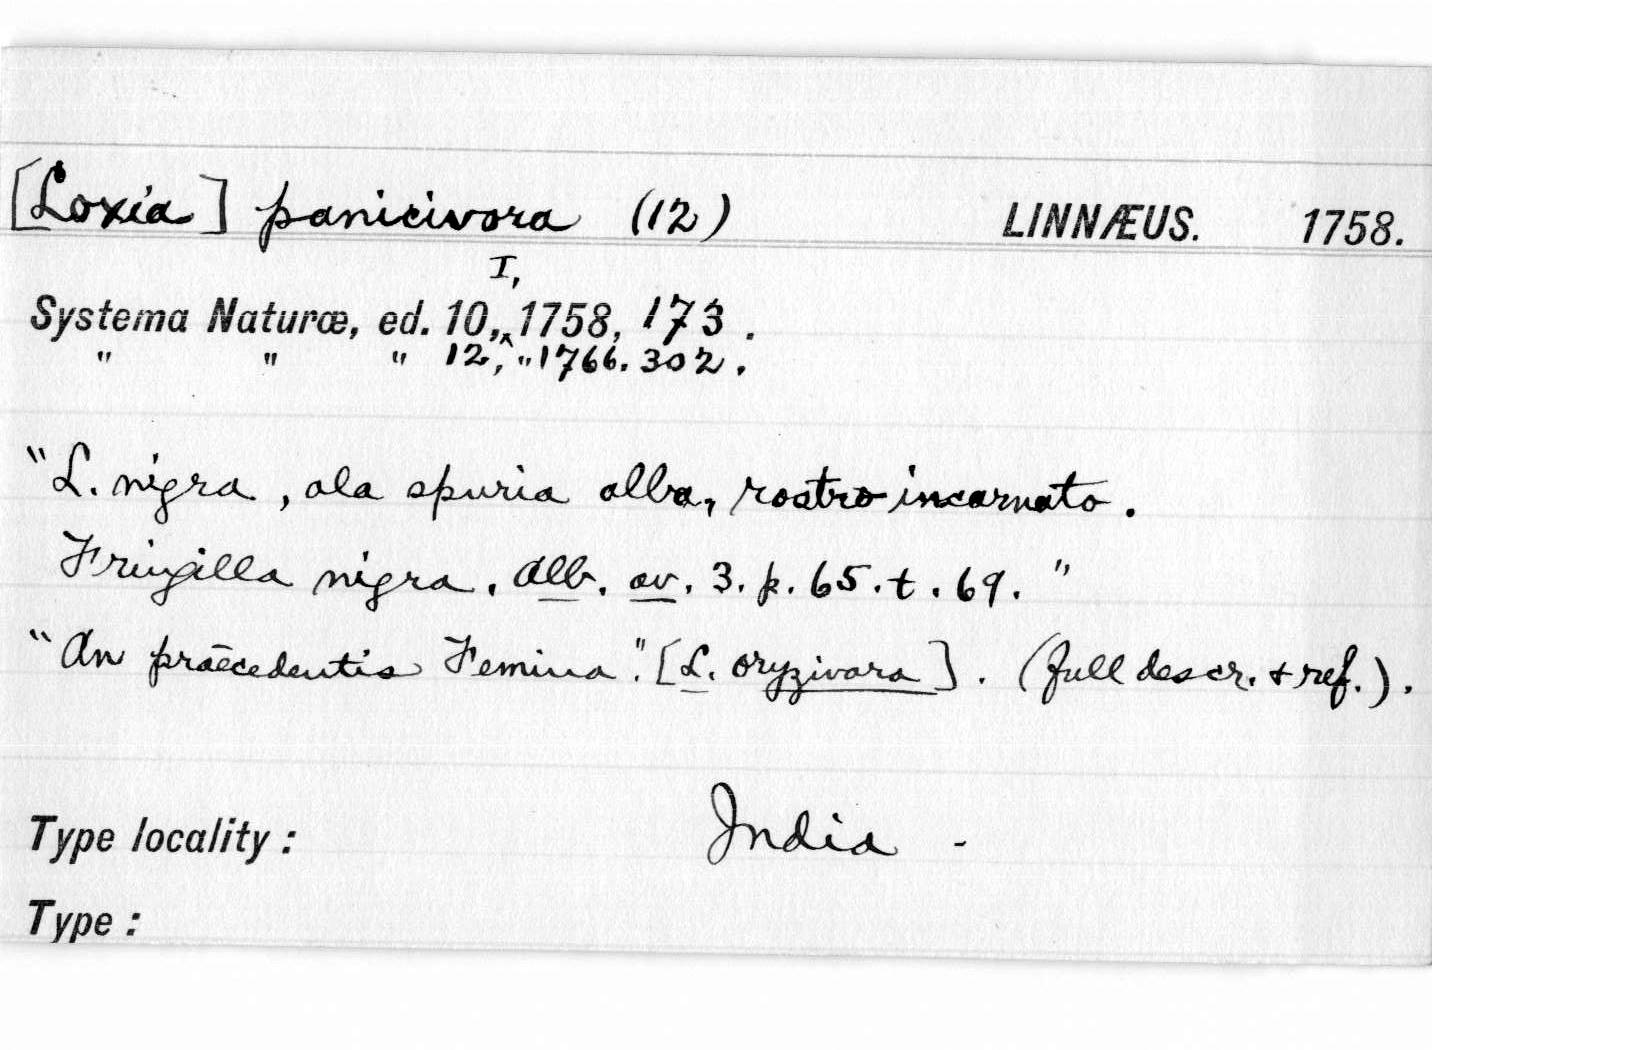 [Loxia] panicivora (12) LINNÆUS. 1758.
Systema Naturæ, ed. 10, I, 1758, 173.
" " " 12, " 1766. 302.
"L. nigra, ala spuria alba, rostro incarnato.
Fringilla nigra. Alb. av. 3. p. 65. t. 69."
"An præcedentis Femina". [L. oryzivara]. (full descr. + ref.).
Type locality: India -
Type: